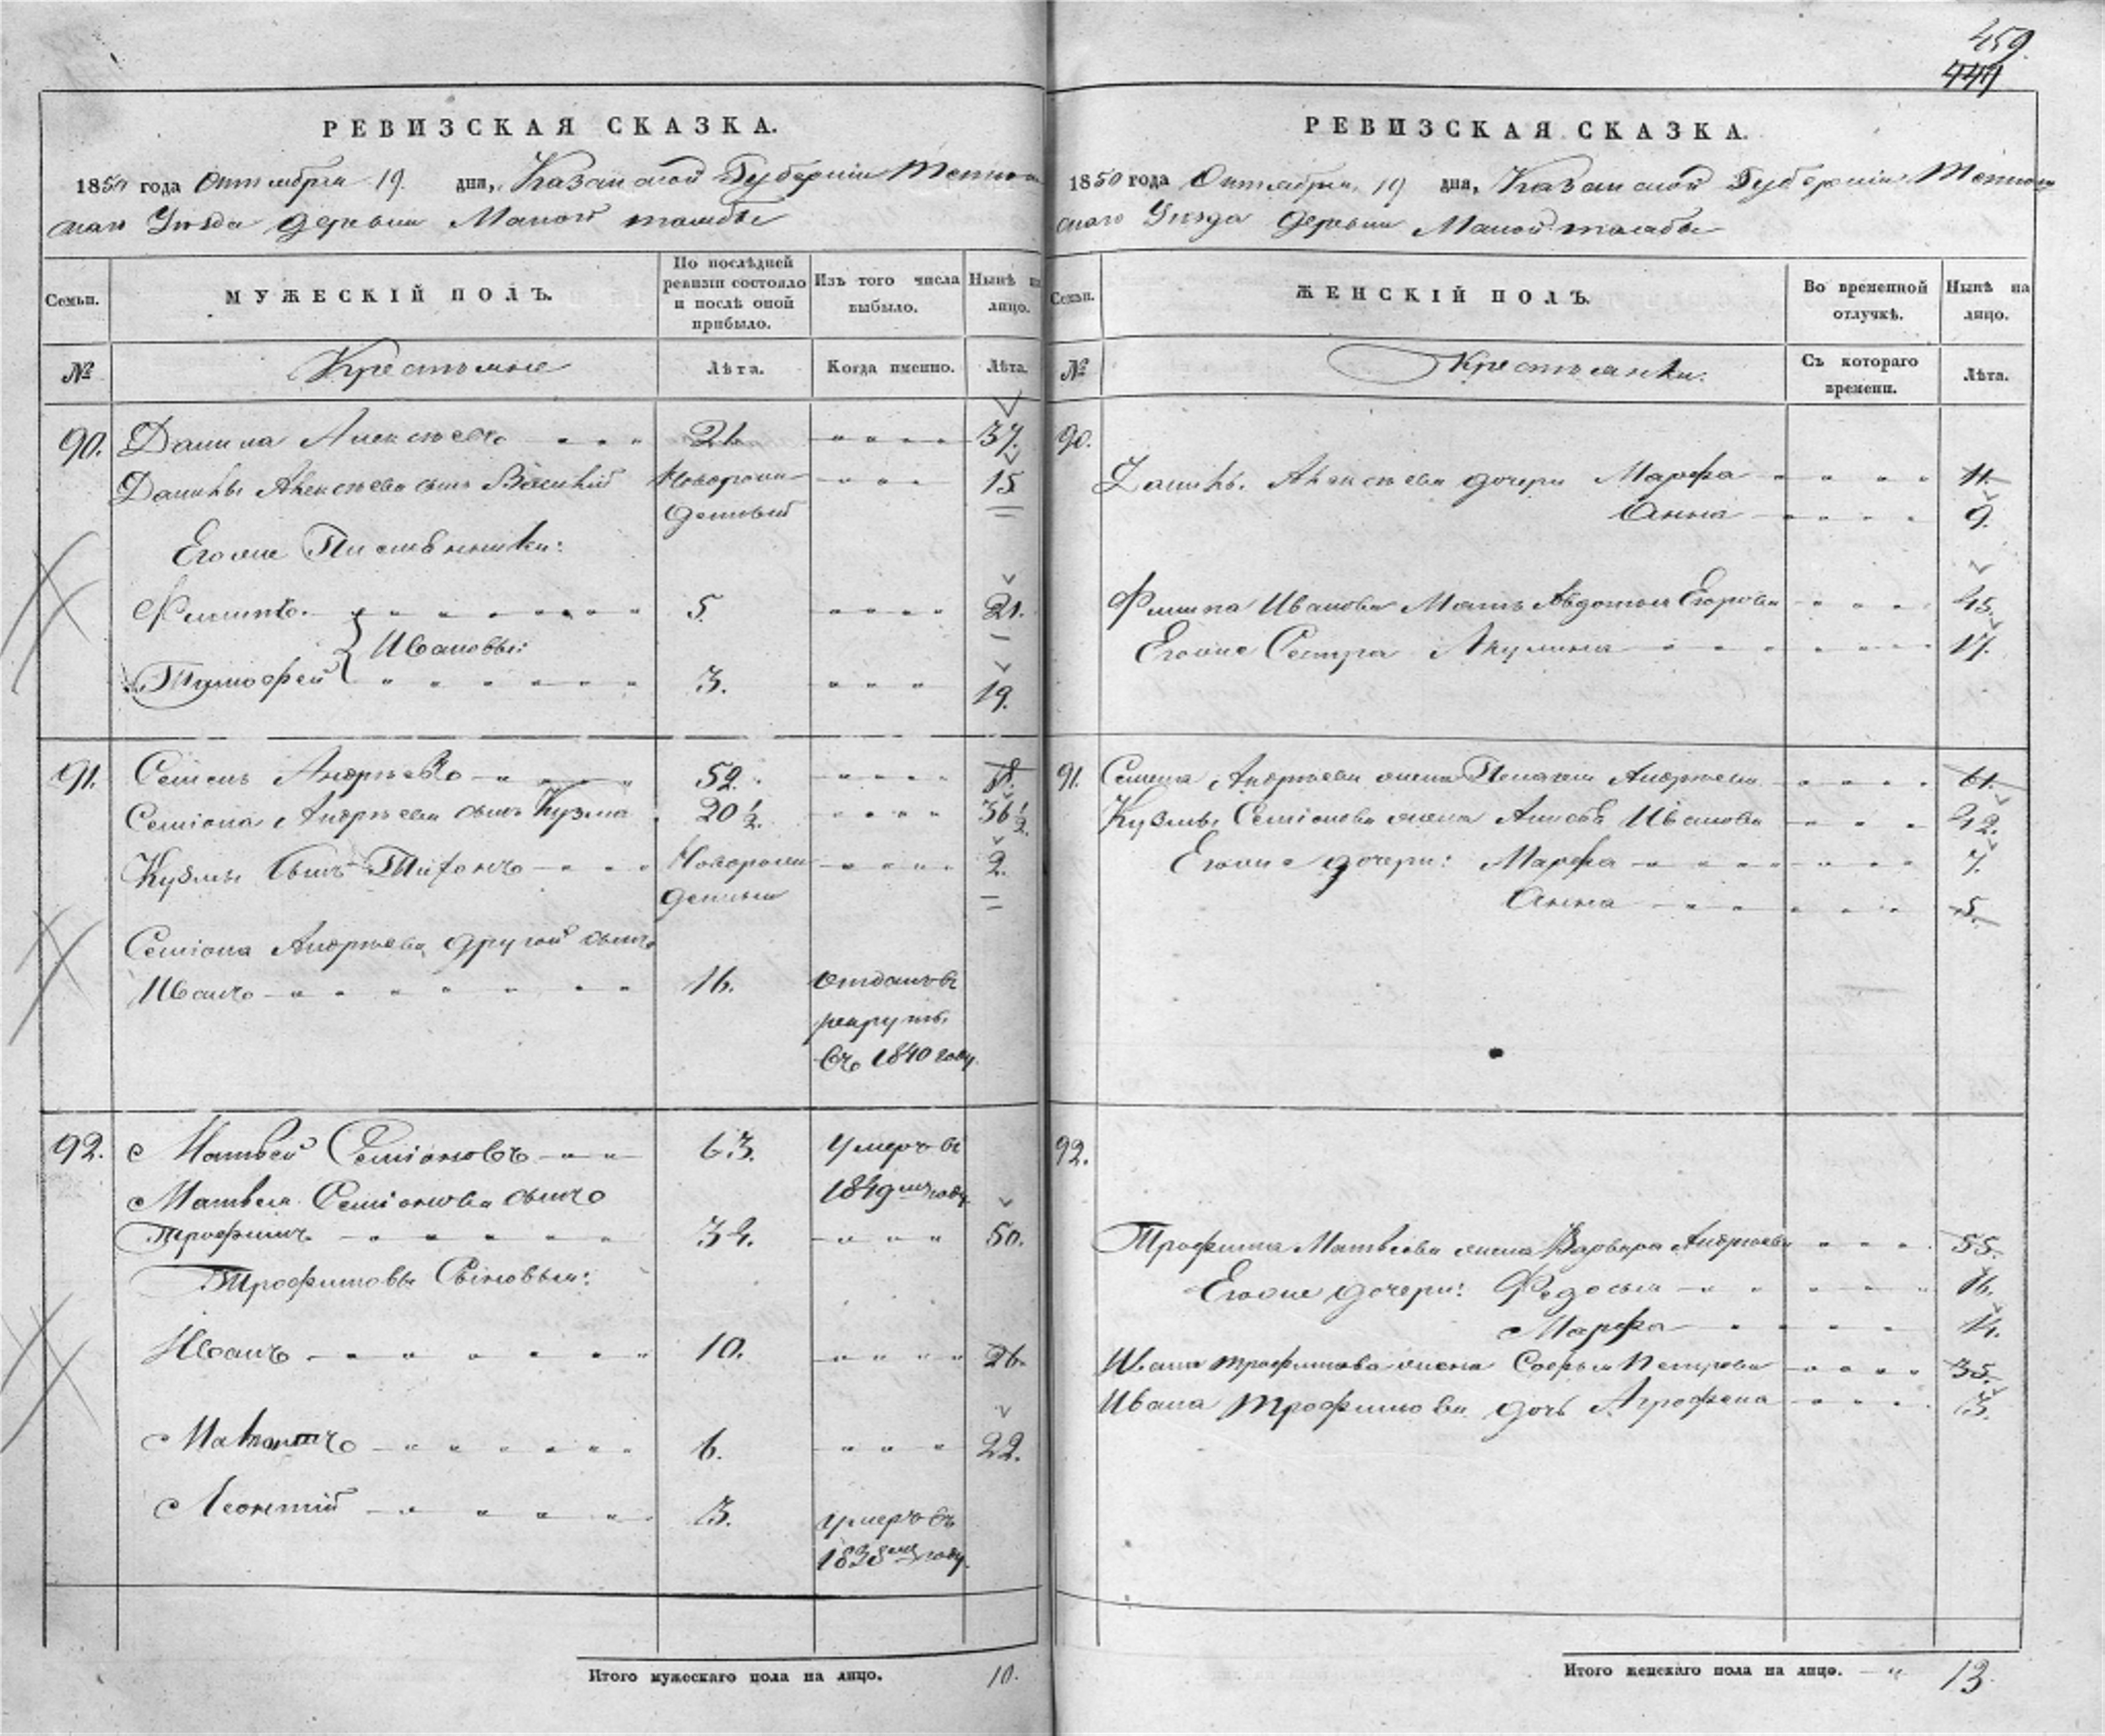 459
441
РЕВИЗСКАЯ СКАЗКА.
1850 года Октября 19. дня, Казанской Губернии
Уезда деревни Малой
Семьи. МУЖЕСКІЙ ПОЛЪ. По послѣдней ревизіи состояло и послѣ оной прибыло. Изъ того числа выбыло. Нынѣ на лицо.
№ Крестьяне Лѣта. Когда именно. Лѣта.
90. Данила Алексѣевъ 21. 37.
Данилы Алексѣева сынъ Василій Новорож- 15.
денный
Егоже Племянники:
Филипъ. 5. 21.
Ивановы:
Тимофей 3. 19.
91. Семенъ Андрѣевъ 52.
Семіона Андрѣева сынъ Кузма 20 1/2. 36 1/2.
Кузмы сынъ Тихонъ Новорож 2.
денный
Семіона Андрѣева другой сынъ
Иванъ 16. отданъ в
рекруты
въ 1840 году.
92. Матвей Семіоновъ 63. умеръ в
Матвея Семіонова сынъ 1849мъ году.
Трофимъ 34. 50.
Трофимовы Сыновья:
Иванъ 10. 26.
6. 22.
Леонтій 3. умеръ въ
1838мъ году.
Итого мужескаго пола на лицо. 10.
РЕВИЗСКАЯ СКАЗКА.
1850 года Октября 19 дня, Казанской Губерніи
Уезда деревни Малой
Семьи. ЖЕНСКІЙ ПОЛЪ. Во временной отлучкѣ. Нынѣ на лицо.
№ Крестьянки. Съ котораго времени. Лѣта.
90.
Данилы Алексѣева дочери Марфа 11.
Анна 9.
Филипа Иванова Мать Авдотья Егорова 45.
Егоже Сестра Акулина 17.
91. Семена Андрѣева жена Пелагея Андрѣева 61.
Кузмы Семіонова жена Иванова 42.
Егоже дочери: Марфа 7.
Анна 5.
92.
Трофима Матвеева жена Варвара Андрѣева 55.
Егоже дочери: Федосья 16.
Марфа 14.
Ивана Трофимова жена Софья Петрова 35.
Ивана Трофимова дочь Агрофена 3.
Итого женскаго пола на лицо. 13.